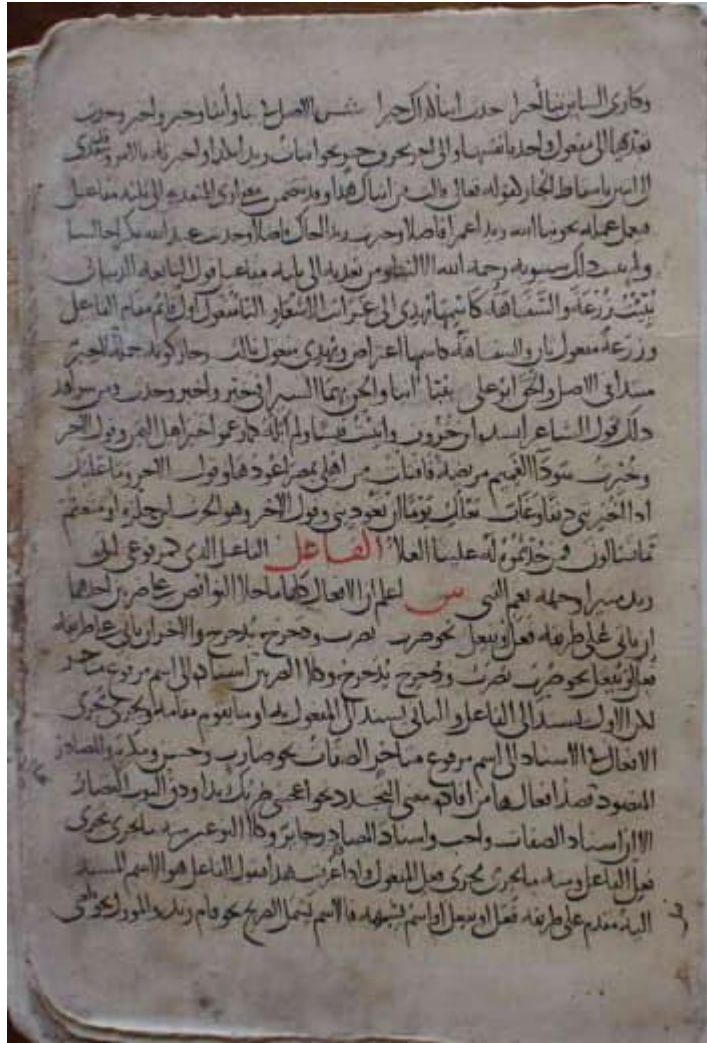 وكارى السابق نبأ أخبرا حدث أنبأ كذاك خبرا ش الأصل في نبأ وأنبأ وخبر وأخبر وحدث
تعديها إلى مفعول واحد بأنفسها وإلى آخر بحرف جر نحو أنبأت زيدا بكذا وأخبرته بالأمر وقد يتعدى
إلى اثنين بإسقاط الجار كقوله تعالى قالت من أنباك هذا وقد يتضمن معنى أرى المتعدية إلى ثلثة مفاعيل
فيعمل عمله نحو نبأ الله زيدا عمرا فاضلا وخبرت زيدا أخاك فاضلا وحدثت عبد الله بكرا جالسا
ولم يثبت ذلك سيبويه رحمه الله إلا لنبأ ومن تعديه إلى ثلثة مفاعيل قول النابغة الذبياني
نُبّئتُ زُرعةَ والسَّفاهةُ كاسمِها يُهدي إلى غرائب الأشعار التاء مفعول أول قائم مقام الفاعل
وزرعة مفعول ثان والسفاهة كاسمها اعتراض ويهدي مفعول ثالث وجاز كونه جملة لأنه خبر
مبتدأ في الأصل وألحق أبو علي بنبأ أنبأ وألحق بهما السيرافي خبر وأخبر وحدث ومن شواهد
ذلك قول الشاعر أنشده ابن خروف وأنبئت قيسا ولم أبله كما زعموا خير أهل اليمن وقول الآخر
وخُبّرتُ سوداءَ الغميم مريضة فأقبلت من أهلي بمصر أعودها وقول الآخر وما عليك
إذا أخبرتني دنفا وغاب بعلك يوما أن تعوديني وقول الآخر وهو الحرث بن حلزة أو منعتم
ما تسألون فمن حدثتموه له علينا العلاء الفاعل الفاعل الذي كمرفوعي أتى
زيد منيرا وجهه نعم الفتى ش اعلم أن الأفعال كلها ما خلا النواقص على ضربين أحدهما
أن يأتي على طريقة فعل أو يفعل نحو ضرب يضرب ودحرج يدحرج والآخر أن يأتي على طريقة
فُعل أو يُفعل نحو ضُرب يُضرب ودُحرج يُدحرج وكلا الضربين إسناده إلى اسم مرفوع متأخر
لكن الأول يسند إلى الفاعل والثاني يسند إلى المفعول به أو ما يقوم مقامه ويجري مجرى
الأفعال في الإسناد إلى اسم مرفوع متأخر الصفات نحو ضارب وحسن ومكرم والمصادر
المقصود قصد أفعالها من إفادة معنى التجدد نحو أعجبني ضربك زيدا ودق الثوب القصار
إلا أن إسناد الصفات واجب وإسناد المصادر جائز وكلا النوعين منه ما يجري مجرى
فعل الفاعل ومنه ما يجري مجرى فعل المفعول وإذا عرفت هذا فنقول الفاعل هو الاسم المسند
إليه فعل مقدم على طريقة فعل أو يفعل أو اسم يشبهه فالاسم يشمل الصريح نحو قام زيد والمؤول نحو